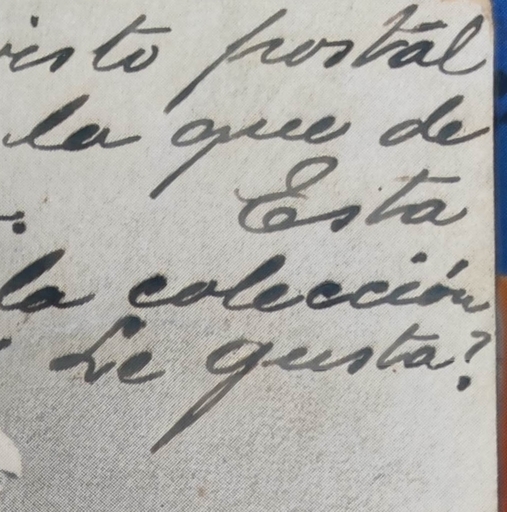 visto postal
la que de
. Esta
la colección
Le gusta?